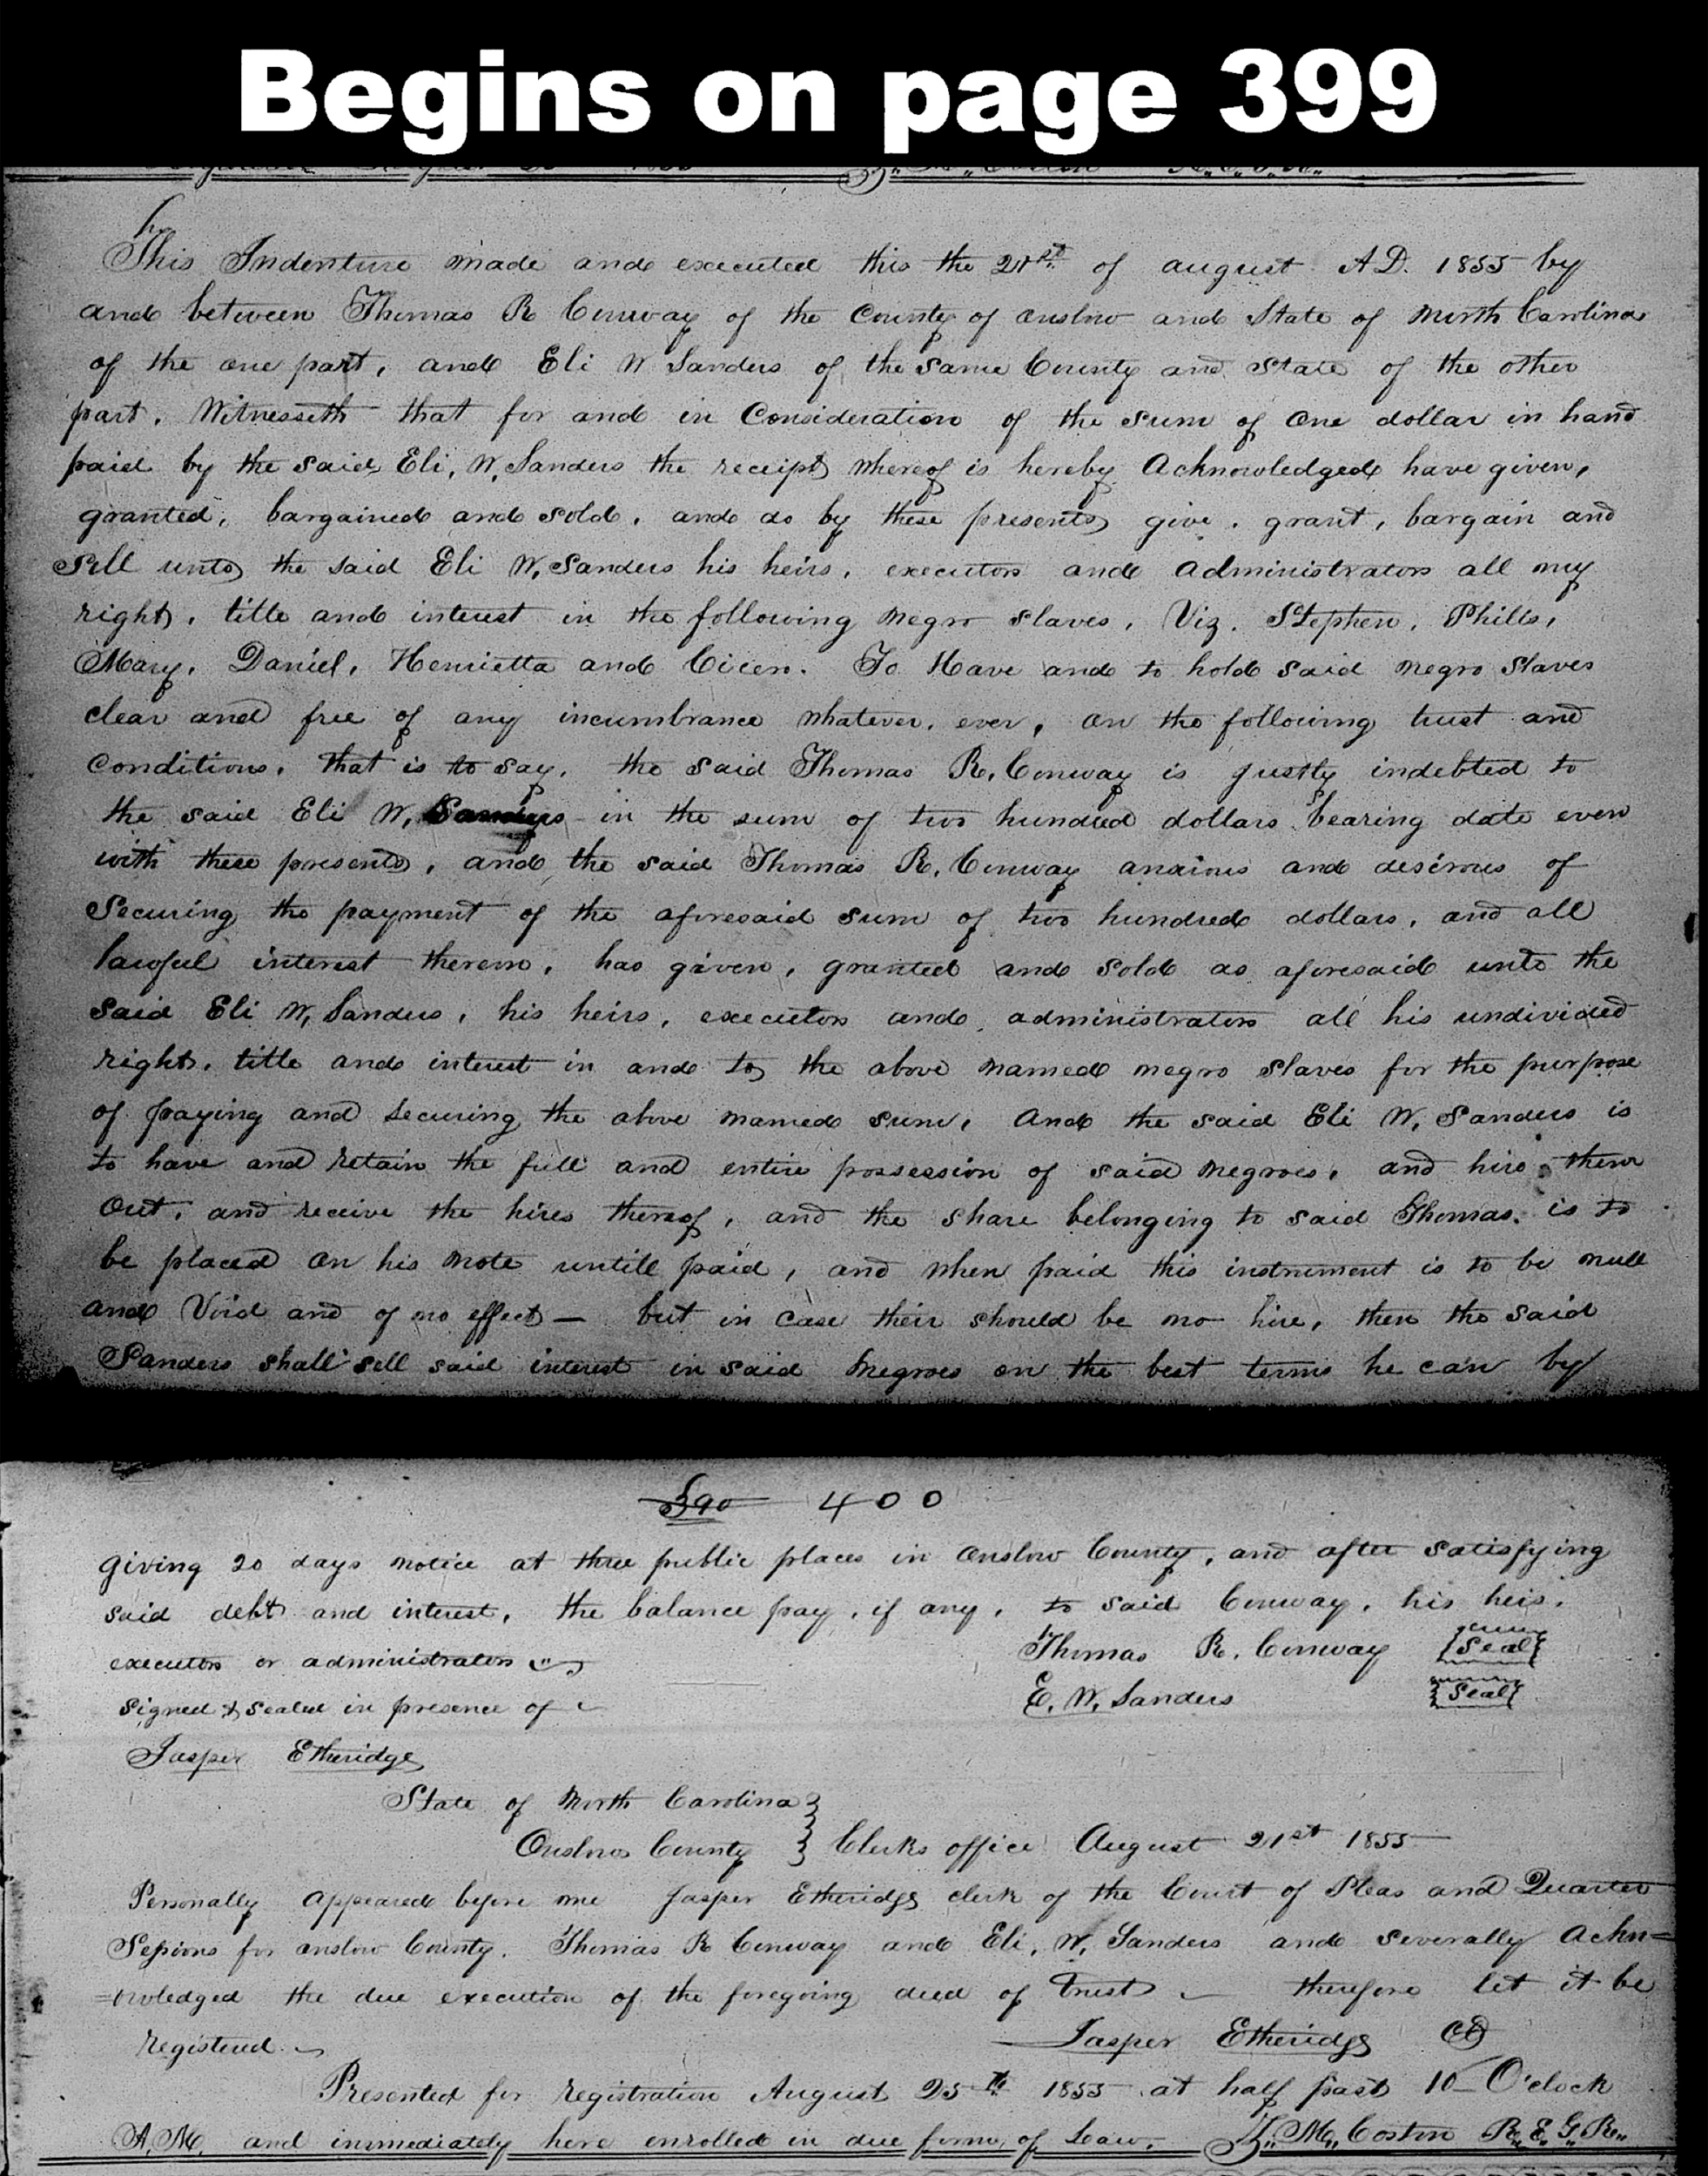 Begins on page 399
This Indenture made and executed this the 21st of august A.D. 1855 by
and between Thomas R Conway of the County of Onslow and State of North Carolina
of the one part, and Eli W Sanders of the same County and State of the other
part. Witnesseth that for and in Consideration of the sum of One dollar in hand
paid by the said Eli, W, Sanders the receipt whereof is hereby Acknowledged have given,
granted, bargained and sold, and do by these presents give, grant, bargain and
sell unto the said Eli W, Sanders his heirs, executors and administrators all my
right, title and interest in the following negro slaves, Viz. Stephen, Phills,
Mary, Daniel, Henrietta and Cicen. To Have and to hold said negro slaves
clear and free of any incumbrance whatever, ever, on the following trust and
conditions, that is to say, the said Thomas R, Conway is justly indebted to
the said Eli W, Sanders in the sum of two hundred dollars bearing date even
with these presents, and the said Thomas R, Conway anxious and desirous of
Securing the payment of the aforesaid sum of two hundred dollars, and all
lawful interest thereon, has given, granted and sold as aforesaid unto the
said Eli W, Sanders, his heirs, executors and administrators all his undivided
right, title and interest in and to the above named negro slaves for the purpose
of paying and securing the above named sum, And the said Eli W, Sanders is
to have and retain the full and entire possession of said negroes, and hire them
out, and receive the hires thereof, and the share belonging to said Thomas, is to
be placed on his note untill paid, and when paid this instrument is to be null
and Void and of no effect — but in case their should be no hire, then the said
Sanders shall sell said interest in said negroes on the best terms he can by
390 400
giving 20 days notice at three public places in Onslow County, and after satisfying
said debt and interest, the balance pay, if any, to said Conway, his heis,
executors or administrators
Thomas R. Conway Seal
signed & sealed in presence of
E. W. Sanders Seal
Jasper Etheridge
State of North Carolina
Onslow County } Clerks office August 21st 1855
Personally appeared before me Jasper Etheridge clerk of the Court of Pleas and Quarter
Sessions for onslow County, Thomas R Conway and Eli, W, Sanders and severally Ackn=
=owledged the due execution of the foregoing deed of Trust — therefore let it be
registered.
Jasper Etheridge
Presented for registration August 25th 1855 at half past 10 O'clock
A,M, and immediately here enrolled in due form, of Law. M,, Coston